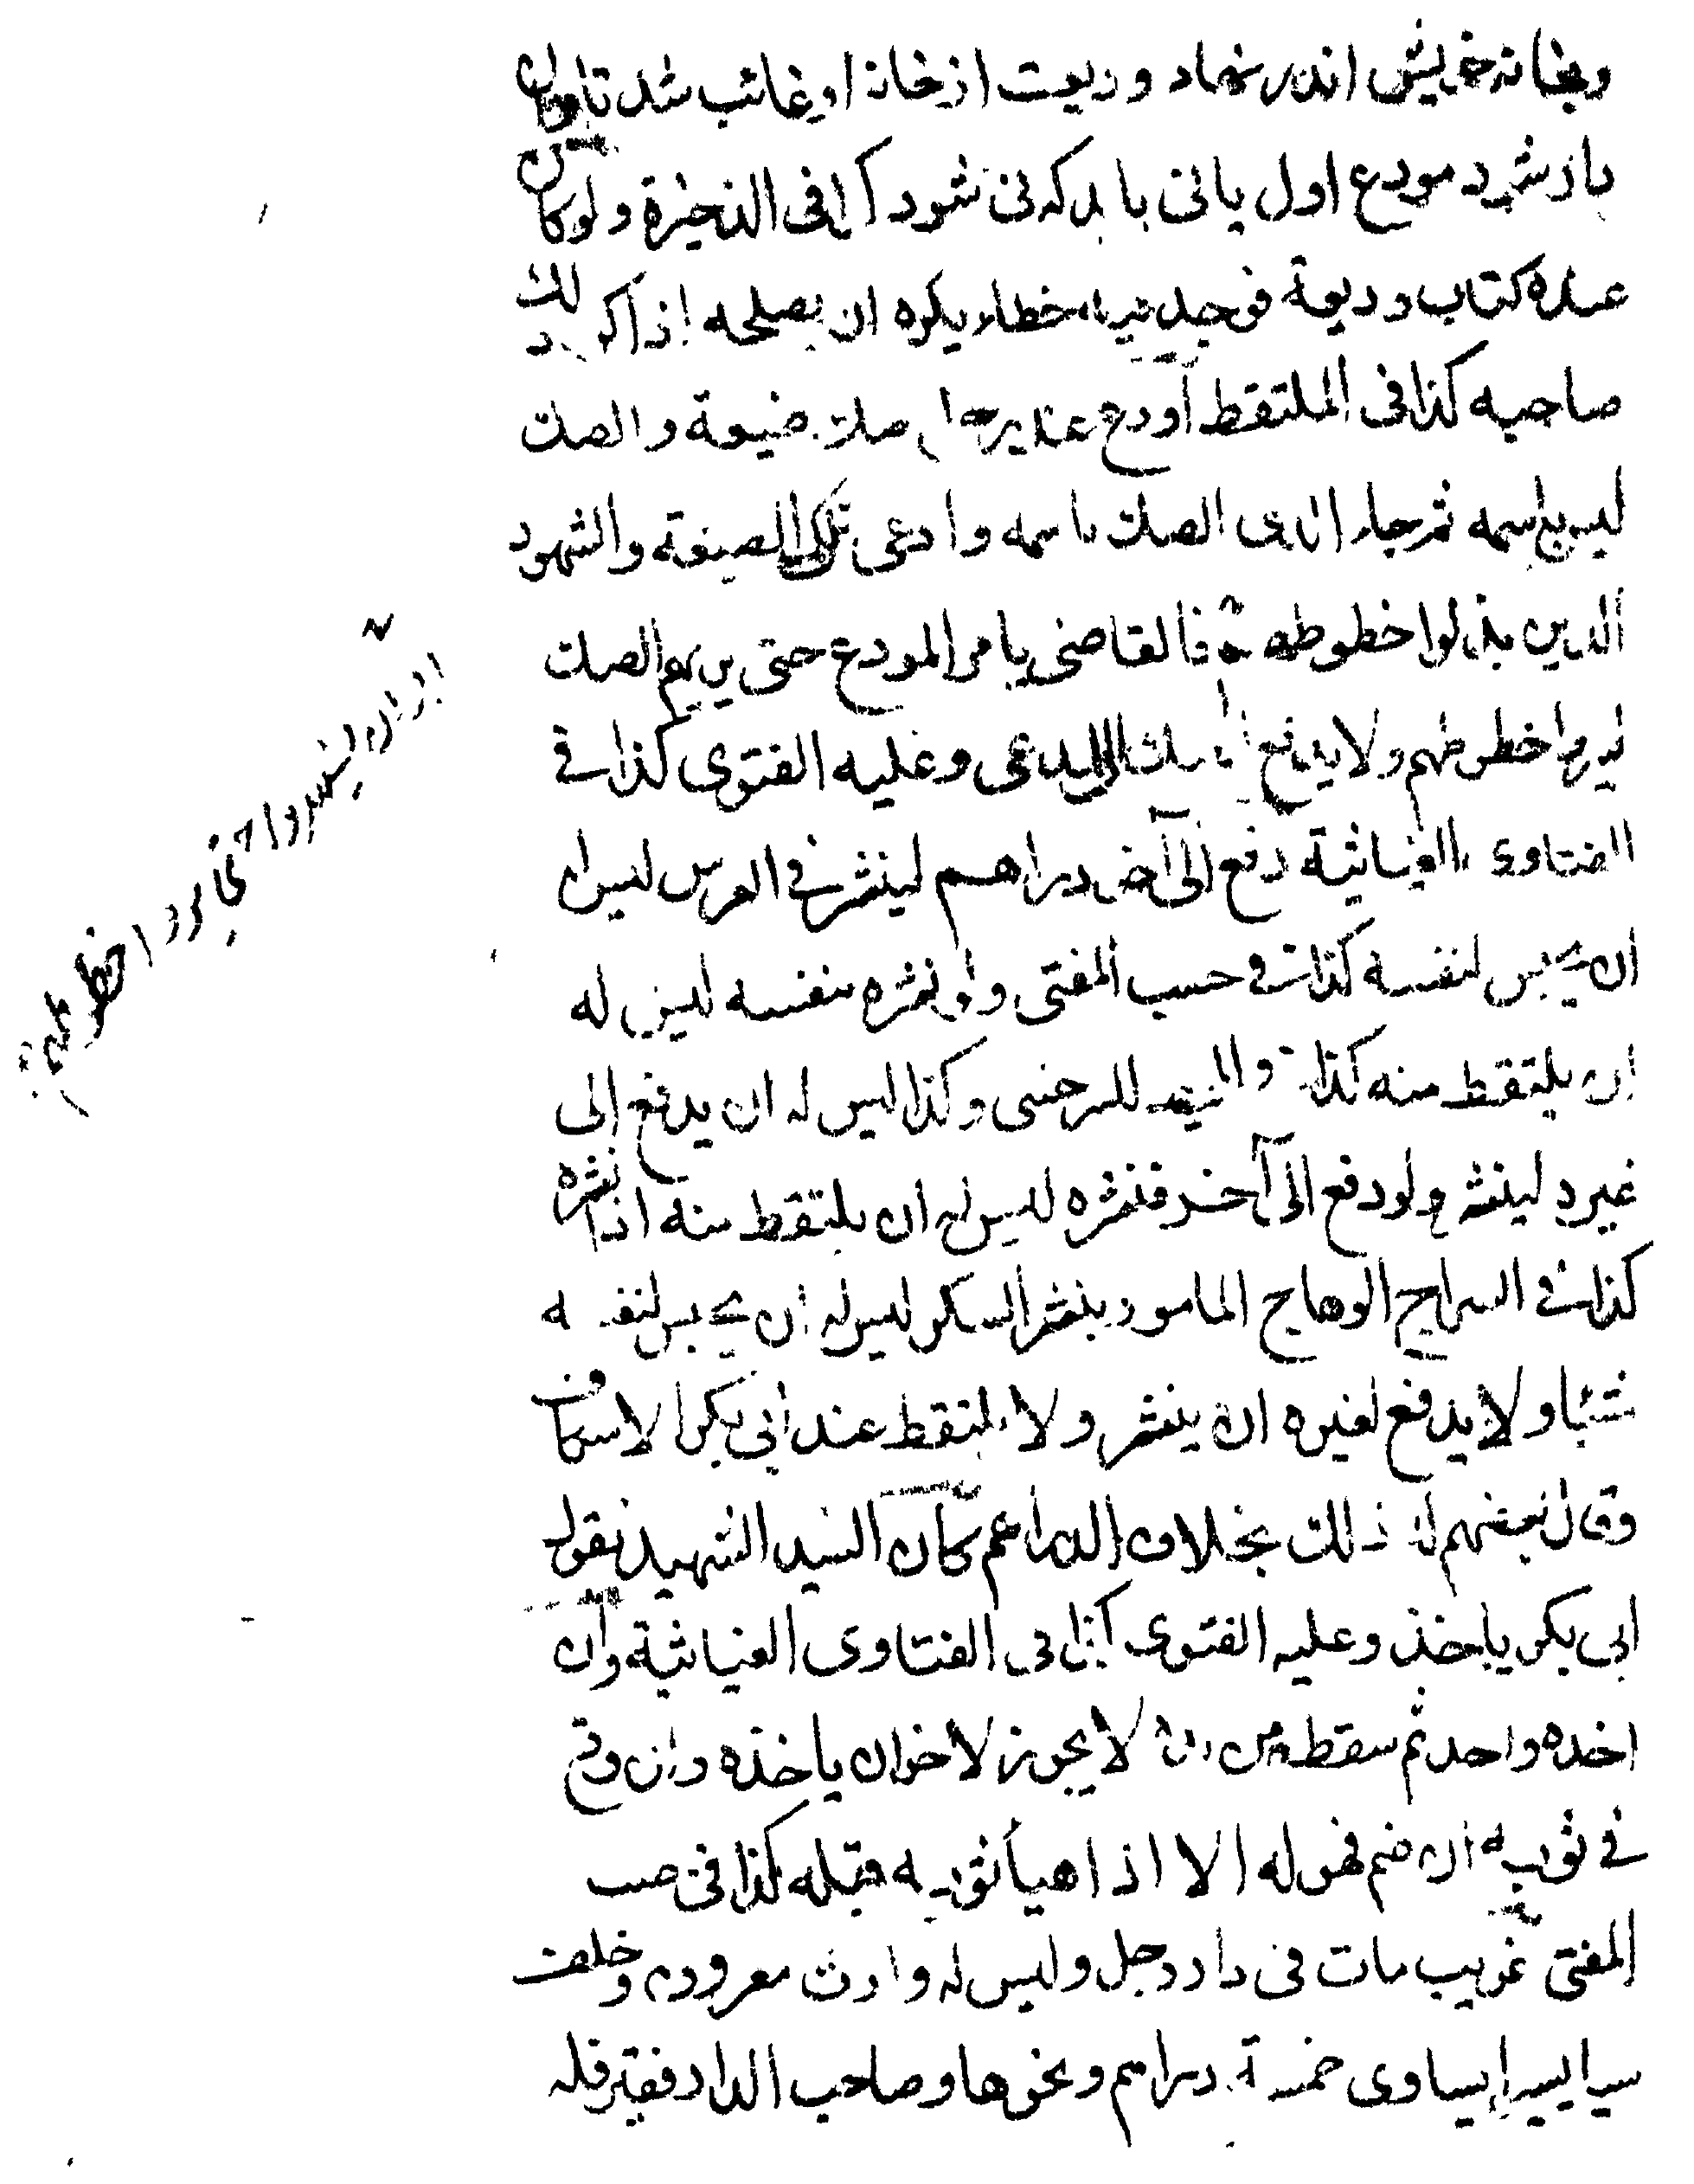 وبخانه خویش اندر نهاد ودیعت از خانه او غائب شد تاوان
باز شرد مودع اول یا نی باید که نی شود كذا فی الذخیرة ولو كان
عنده كتاب ودیعة فوجد فیه خطاء یكره ان یصلحه اذا كره ذلك
صاحبه كذا فی الملتقط اودع عند رجل صك ضیعة والصك
لیس باسمه ثم جاء الذی الصك باسمه وادعی تلك الضیعة والشهود
الذین بذلوا خطوطهم فالقاضی یامر المودع حتی یریهم الصك
لیروا خطوطهم ولا یدفع الصك الی المدعی وعلیه الفتوی كذا فی
الفتاوی الغیاثیة دفع الی آخر دراهم لینثر فی العرس لیس له
ان یحبس لنفسه كذا فی حسب المفتی ولو نثره بنفسه لیس له
ان یلتقط منه كذا للسرخسی وكذا لیس له ان یدفع الی
غیره لینثر ولو دفع الی آخر فنثره لیس له ان یلتقط منه اذا نثره
كذا فی السراج الوهاج المامور بنثر السكر لیس له ان یحبس لنفسه
شیئا ولا یدفع لغیره ان ینثر ولا یلتقط عند ابی بكر الاسكاف
وقال بعضهم له ذلك بخلاف الدراهم كان السید الشهید بقول
ابی بكر یاخذ وعلیه الفتوی كذا فی الفتاوی الغیاثیة وان
اخذه واحد ثم سقط من لا یجوز لاخر ان یاخذه وان وقع
فی ثوبه ان ضم فهو له الا اذا هیأ ثوبه قبله كذا فی حسب
المفتی غریب مات فی دار رجل ولیس له وارث معروف وخلف
یسیرا یساوی خمسة دراهم ونحوها وصاحب الدار فقیر فله